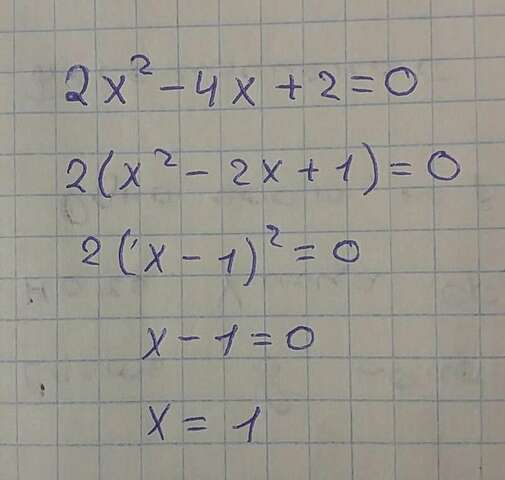 2x² - 4x + 2 = 0
2(x² - 2x + 1) = 0
2(x - 1)² = 0
x - 1 = 0
x = 1